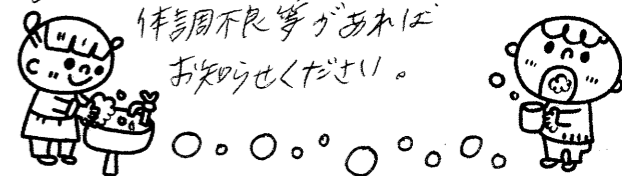 体調不良等があれば
お知らせください。